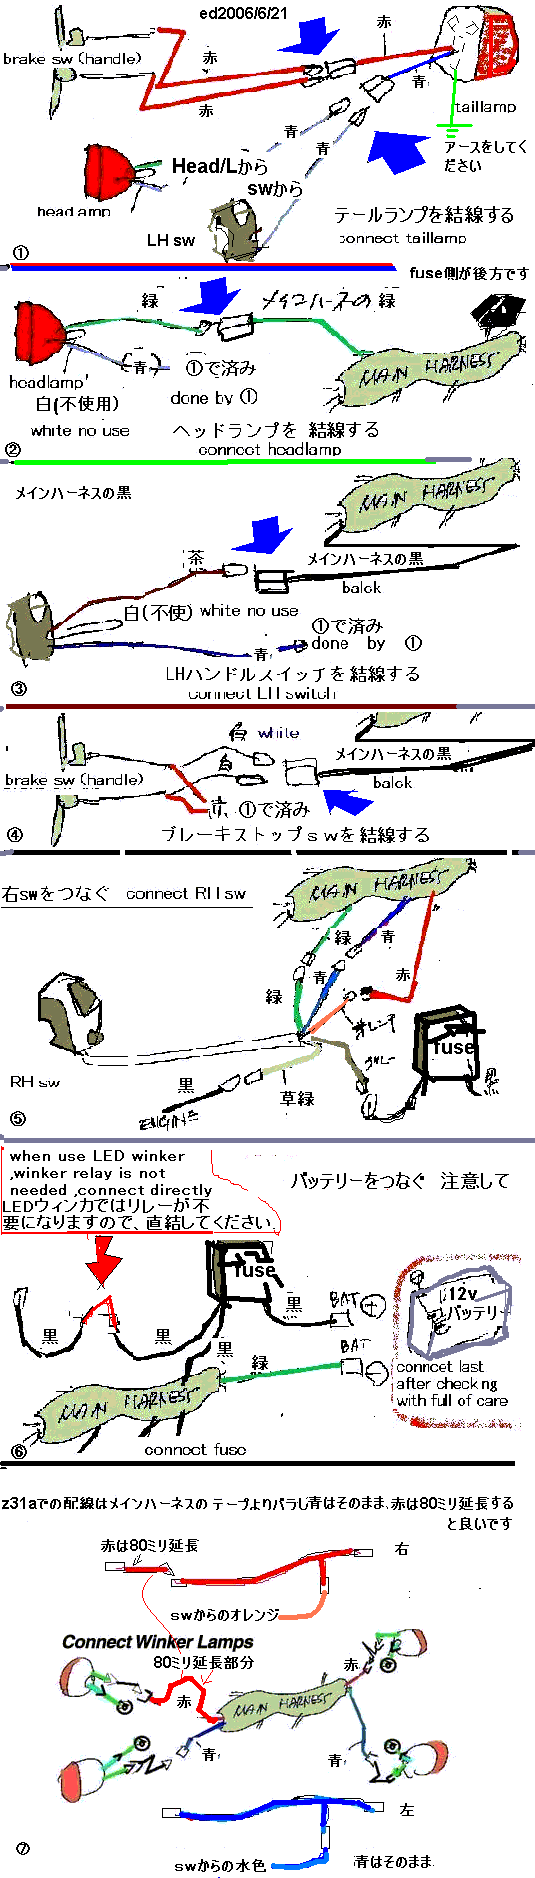 ed2006/6/21
赤
brake sw (handle)
赤
青
赤
taillamp
青
アースをしてく
ださい
Head/Lから
swから
headlamp
テールランプを結線する
LH sw
connect taillamp
①
fuse側が後方です
緑
メインハーネスの 緑
MAIN HARNESS
青
①で済み
headlamp
白(不使用)
done by ①
white no use
ヘッドランプを 結線する
②
connect headlamp
メインハーネスの黒
MAIN HARNESS
茶
メインハーネスの黒
balok
白(不使) white no use
①で済み
青
done by ①
LHハンドルスイッチを結線する
③
connect LH switch
白 white
メインハーネスの黒
白
brake sw (handle)
balok
赤 ①で済み
④
ブレーキストップswを結線する
右swをつなぐ connect RH sw
MAIN HARNESS
緑
青
青
赤
緑
オレンヂ
fuse
RH sw
黒
草緑
黒
⑤
ENGINE
when use LED winker
,winker relay is not
needed ,connect directly
LEDウィンカではリレーが不
要になりますので、直結してください.
バッテリーをつなぐ 注意して
fuse
12v
バッテリー
黒
黒
黒
BAT +
黒
BAT
緑
−
conncet last
after checking
with full of care
MAIN HARNESS
⑥
connect fuse
z31aでの配線はメインハーネスの テープよりバラし青はそのまま、赤は80ミリ延長する
と良いです
赤は80ミリ延長
右
swからのオレンジ
Connect Winker Lamps
80ミリ延長部分
赤
赤
MAIN HARNESS
青
青
左
swからの水色
青はそのまま
⑦